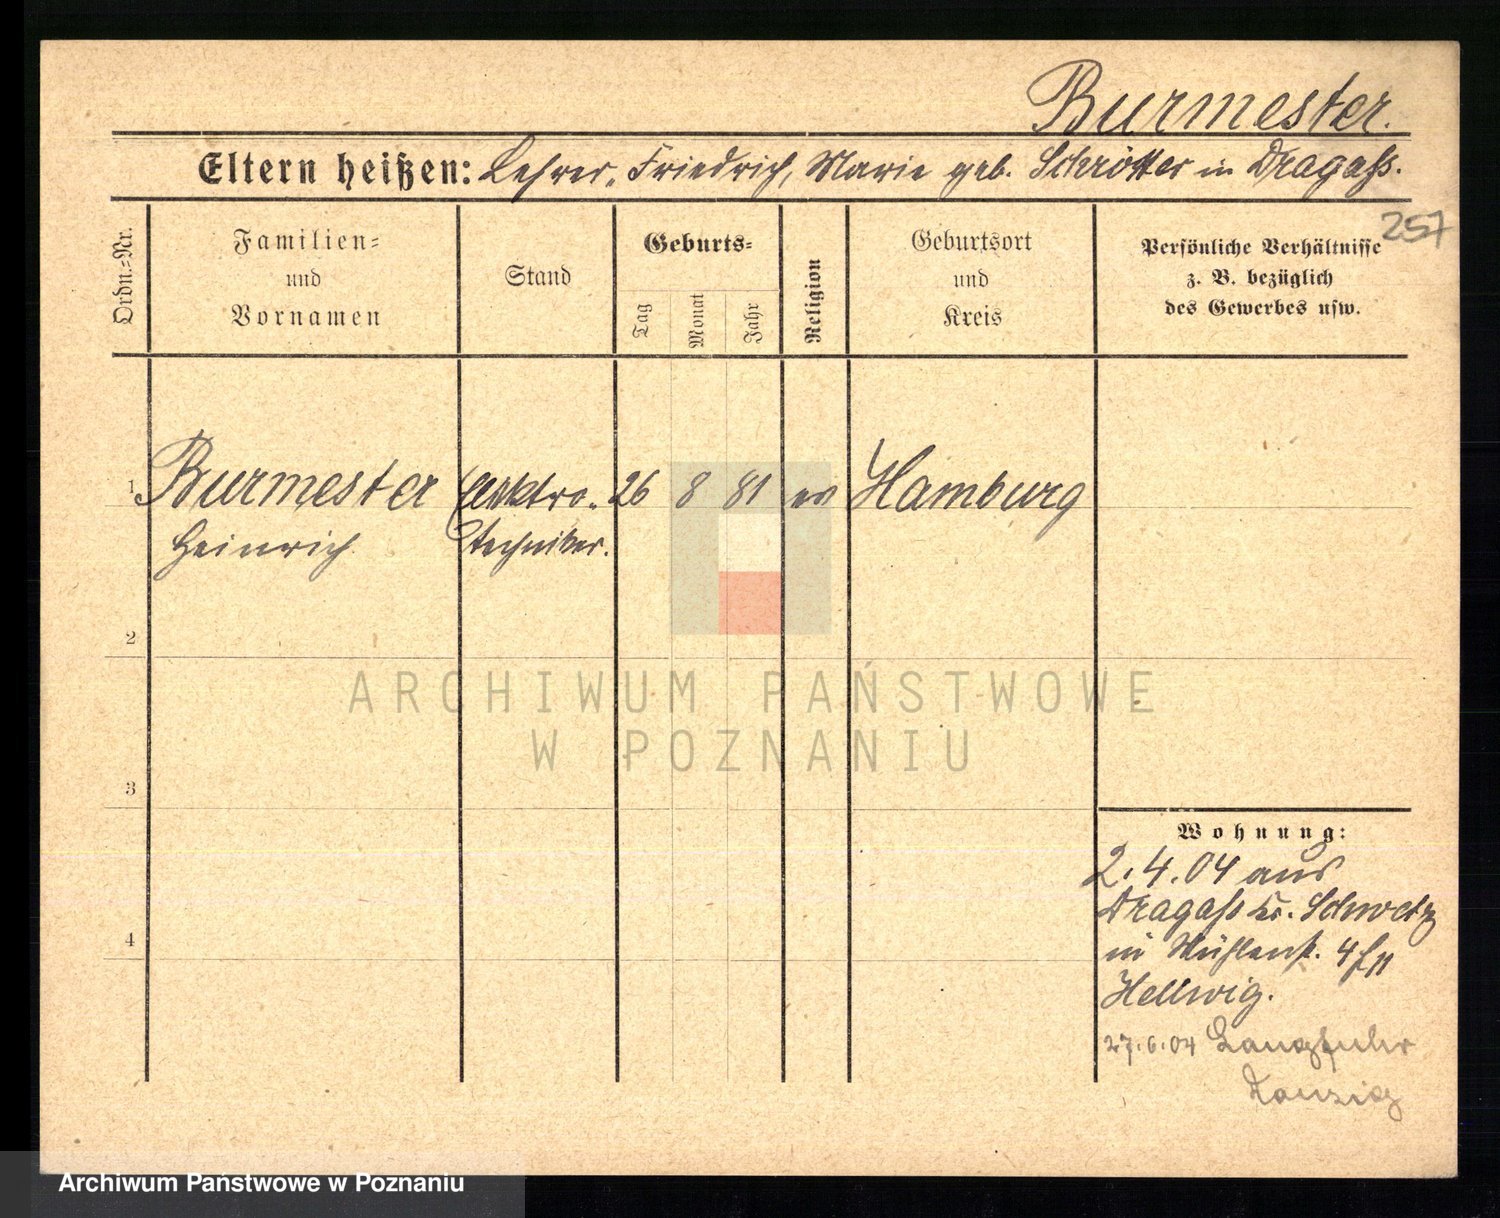 Burmester.
Eltern heißen: Lehrer, Friedrich, Marie geb. Schrötter in Dragaß.
257
Ordn.-Nr.
Familien-
und
Vornamen
Stand
Geburts-
Tag
Monat
Jahr
Religion
Geburtsort
und
Kreis
Persönliche Verhältnisse
z. B. bezüglich
des Gewerbes usw.
1 Burmester Elektro- 26 8 81 ev Hamburg
Heinrich techniker.
2
3
4
ARCHIWUM PAŃSTWOWE
W POZNANIU
Wohnung:
2.4.04 aus
Dragaß Kr. Schwetz
in Mühlenst. 4
Hellwig.
27.6.04 Langfuhr
Danzig
Archiwum Państwowe w Poznaniu